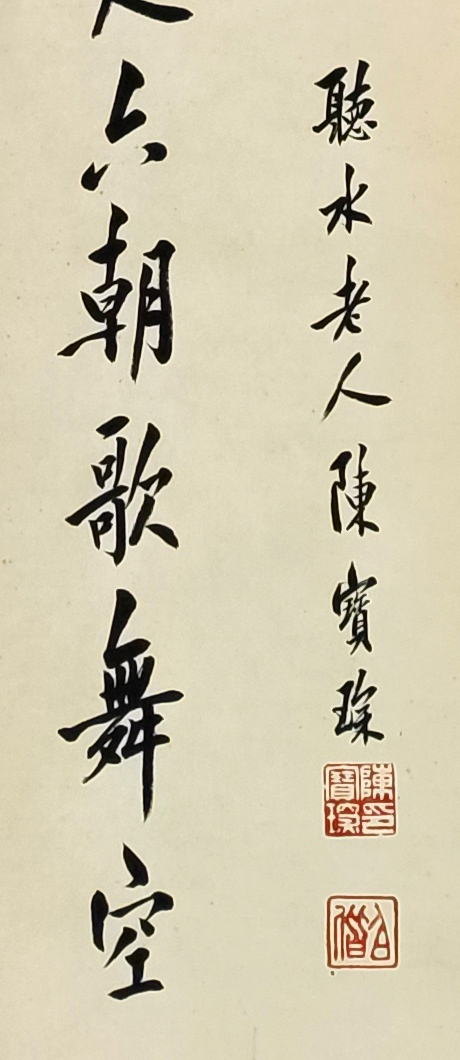 聽水老人陳寶琛
陳印寶琛
六朝歌舞空